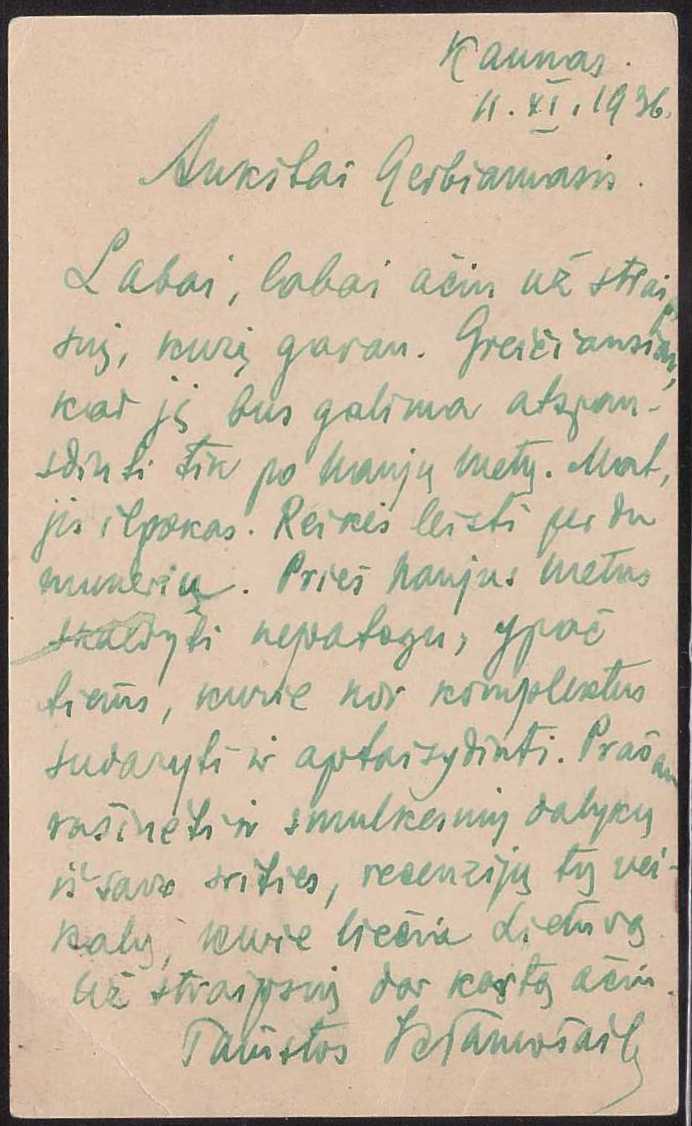 Kaunas.
11.XI.1936.
Aukštai Gerbiamasis.
Labai, labai ačiū už straip
snį, kurį gavau. Greičiausiai,
kad jį bus galima atspau-
sdinti tik po Naujų Metų. Mat,
jis ilgokas. Reikės leisti per du
numeriu. Prieš Naujus Metus
skaldyti nepatogu, ypač
tiems, kurie nor komplektus
sudaryti ir aptaisydinti. Prašau
rašinėti ir smulkesnių dalykų
iš savo srities, recenzijų tų vei-
kalų, kurie liečia Lietuvą
Už straipsnį dar kartą ačiū.
Tamstos